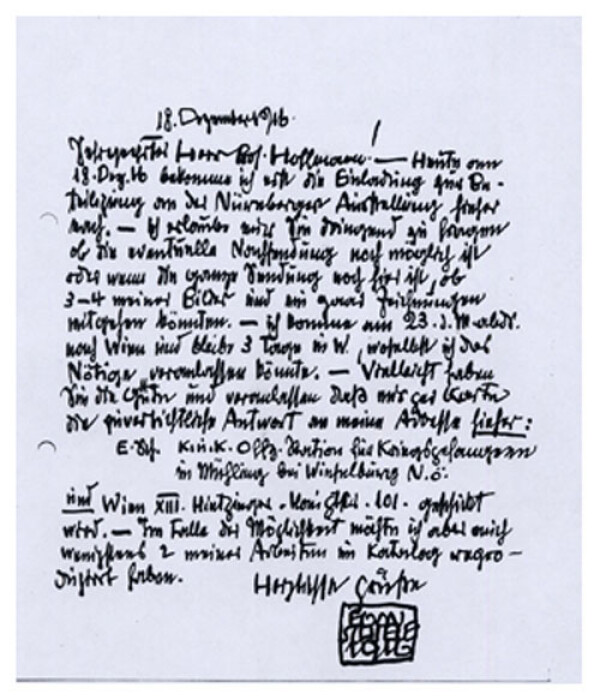 18. Dezember 1916.
Sehr geehrter Herr Prof. Hoffmann! — Heute am
18. Dez. 16 bekomme ich erst die Einladung zur Be-
teiligung an der Nürnberger Ausstellung hieher
nach. — Ich erlaube mir Sie dringend zu fragen
ob die eventuelle Nachsendung noch möglich ist
oder wenn die ganze Sendung noch hier ist, ob
3–4 meiner Bilder und ein paar Zeichnungen
mitgehen könnten. — ich komme am 23. d. M. abds.
nach Wien und bleibe 3 Tage in W., woselbst ich das
Nötige veranlassen könnte. — Vielleicht haben
Sie die Güte und veranlassen daß mir per Karte
die zuversichtliche Antwort an meine Adresse hieher:
E. Sch. K.u.K. Offz. Station für Kriegsgefangene
in Mühling bei Wieselburg N.Ö.
und Wien XIII. Hietzinger-Hauptstr. 101. geschickt
wird. — Im Falle der Möglichkeit möchte ich aber auch
wenigstens 2 meiner Arbeiten im Katalog repro-
duziert haben.
Herzliche Grüße
EGON
SCHIELE
1916